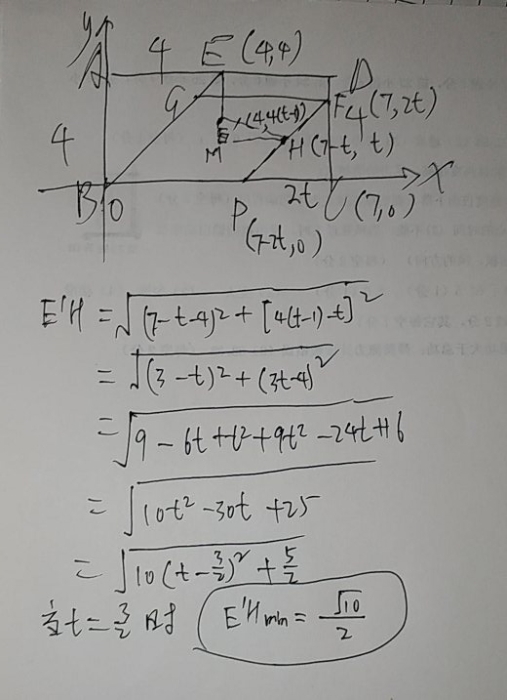 y
A 4 E (4,4) D
G F 4 (7,2t)
4 E' (4,4(t-1))
M H (7-t, t)
B O P 2t C (7,0) X
(7-2t,0)
E'H = √(7-t-4)² + [4(t-1)-t]²
= √(3-t)² + (3t-4)²
= √9 - 6t + t² + 9t² - 24t + 16
= √10t² - 30t + 25
= √10(t - 3/2)² + 5/2
当t = 3/2 时 E'Hmin = √10/2